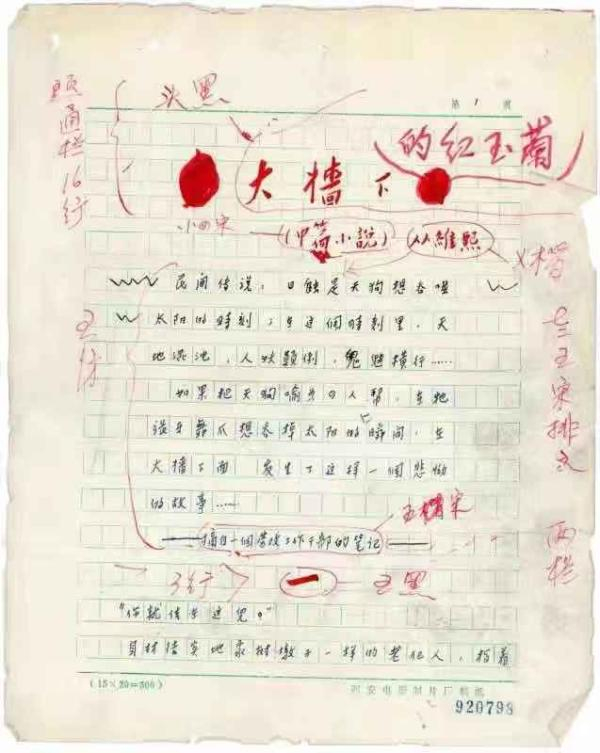 第 1 页
头黑
题通栏16行
的红玉蘭
大墙下
小四宋
(中篇小説) (从維熙)
民间传说，日蚀是天狗想吞噬
太阳的時刻；在这個時刻里，天
地混沌，人妖顛倒，鬼魅横行……
如果把天狗喻为四人幫，在牠
张牙舞爪想吞掉太阳的瞬间，在
大墙下面 发生了这样一個悲恸
的故事……
——摘自一個劳改工作干部的笔记——
3行
一
五黑
两栏
“你就住在这儿。”
身材结实地象树墩子一样的老犯人，指着
(15×20=300)
西安电影制片厂稿纸
920798